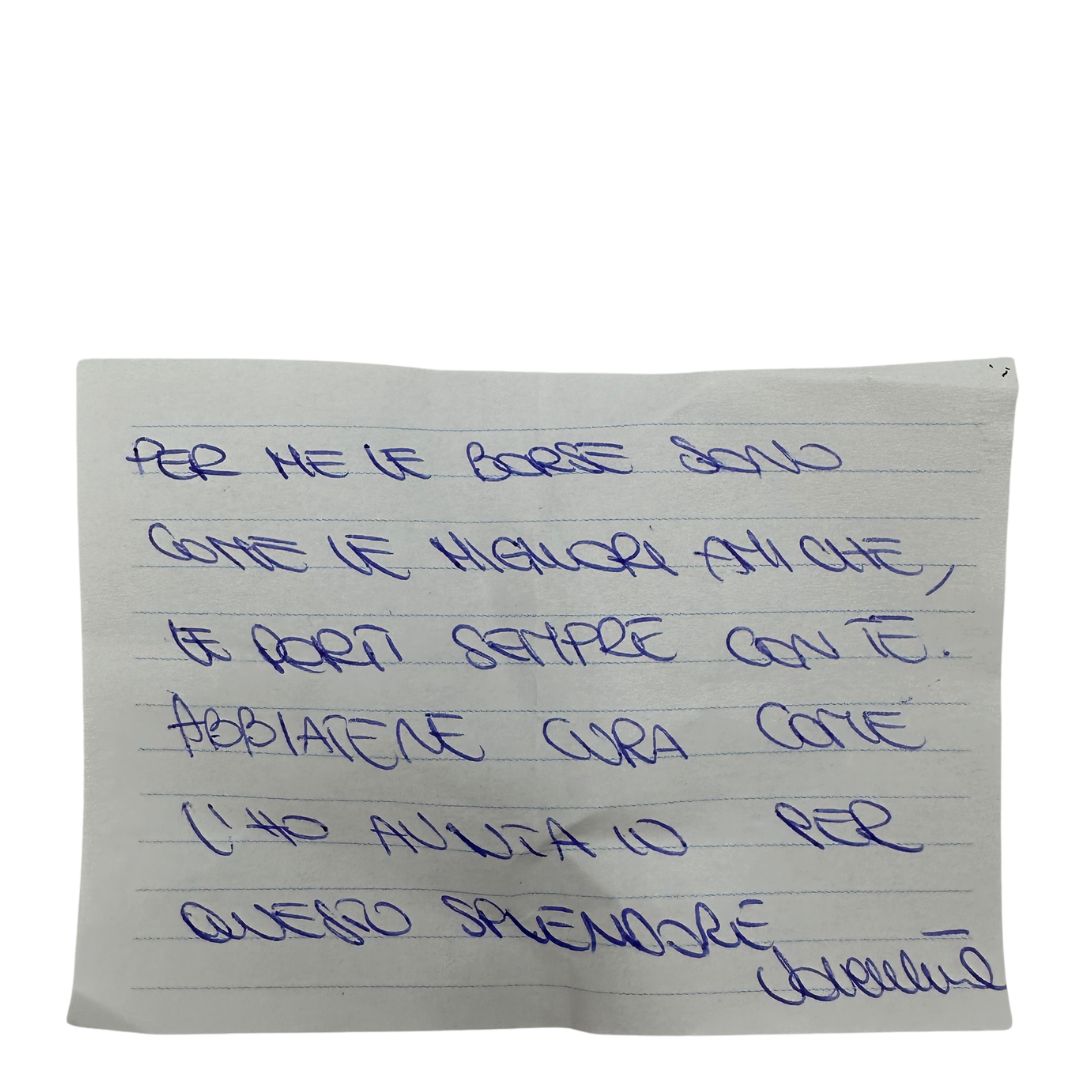 PER ME LE BORSE SONO
COME LE MIGLIORI AMICHE,
LE PORTI SEMPRE CON TE.
ABBIATENE CURA COME
L'HO AVUTA IO PER
QUESTO SPLENDORE